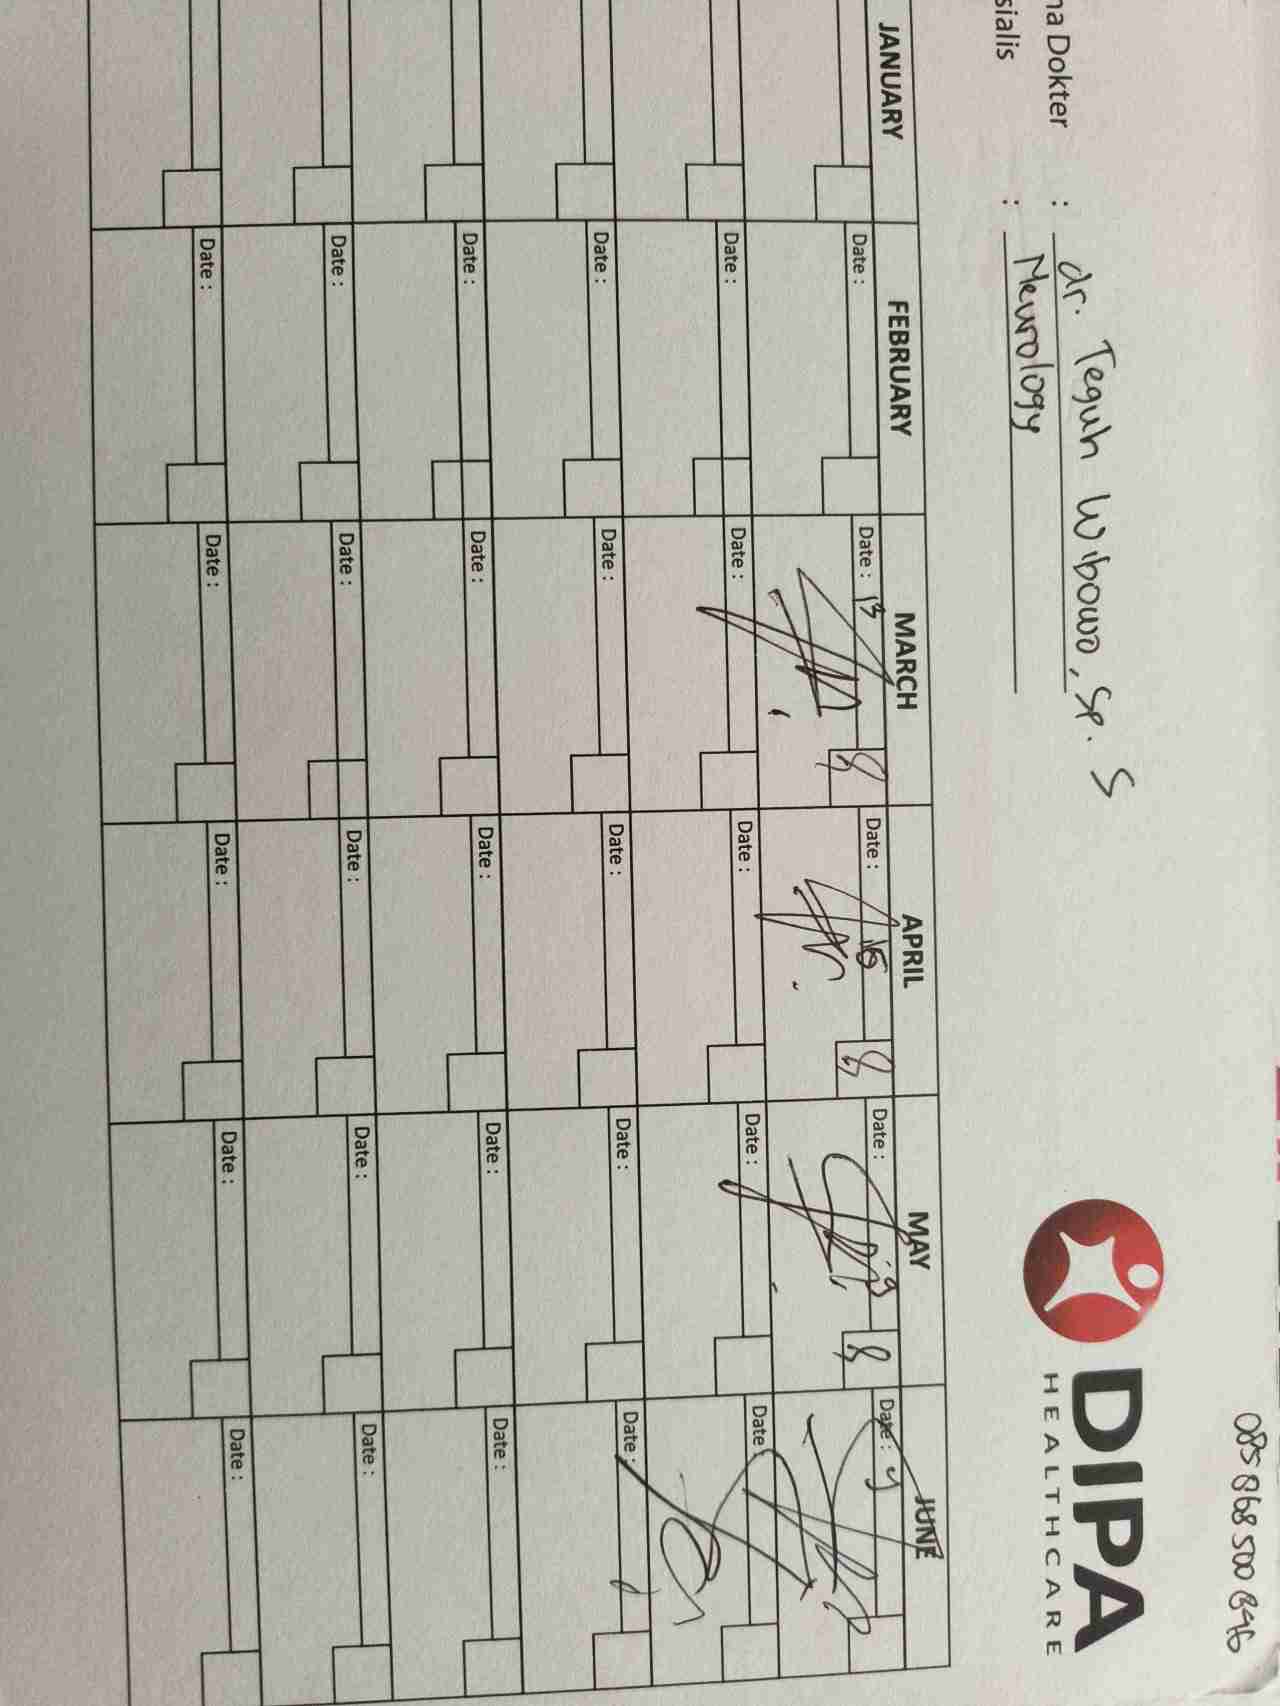 085 868 500 896
DIPA
HEALTHCARE
na Dokter : dr. Teguh Wibowo, Sp. S
sialis : Neurology
JANUARY FEBRUARY MARCH APRIL MAY JUNE
Date : Date : 13 Date : 16 Date : 19 Date : 9
Date : Date : Date : Date : Date :
Date : Date : Date : Date : Date :
Date : Date : Date : Date : Date :
Date : Date : Date : Date : Date :
Date : Date : Date : Date : Date :